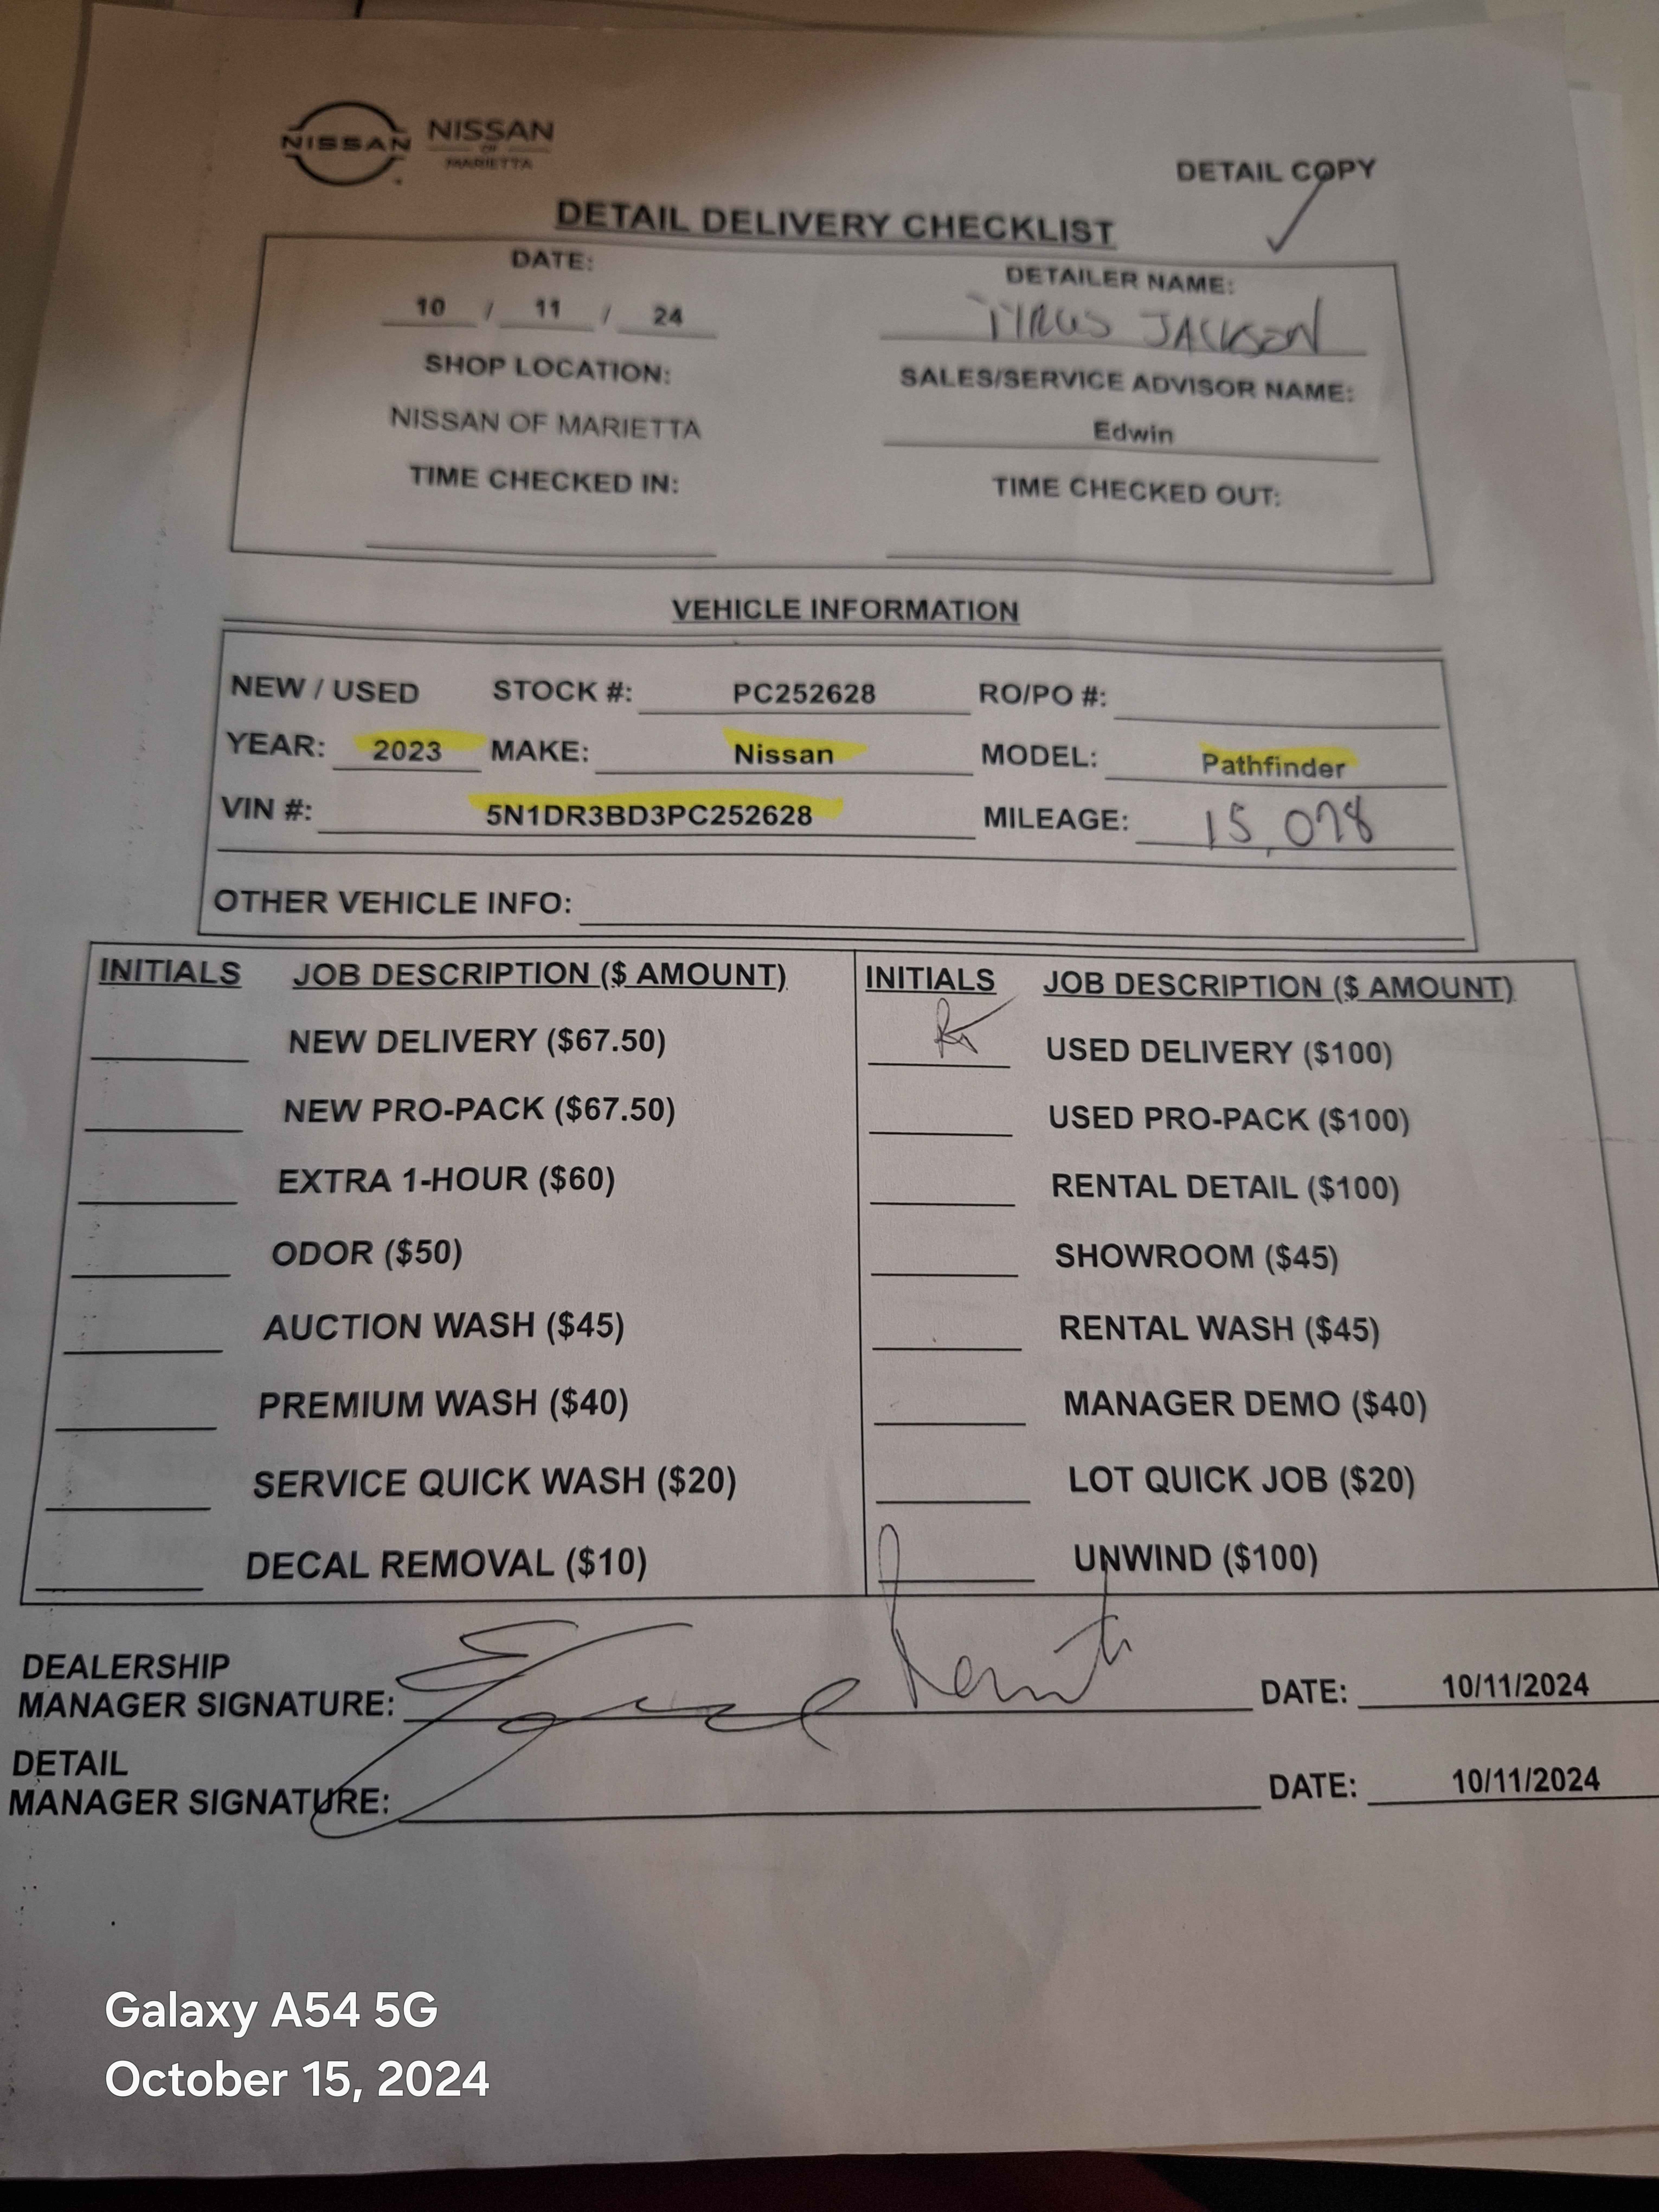 NISSAN
NISSAN
OF
MARIETTA
DETAIL COPY
DETAIL DELIVERY CHECKLIST
DATE: DETAILER NAME:
10 / 11 / 24 TYRUS JACKSON
SHOP LOCATION: SALES/SERVICE ADVISOR NAME:
NISSAN OF MARIETTA Edwin
TIME CHECKED IN: TIME CHECKED OUT:
VEHICLE INFORMATION
NEW / USED STOCK #: PC252628 RO/PO #:
YEAR: 2023 MAKE: Nissan MODEL: Pathfinder
VIN #: 5N1DR3BD3PC252628 MILEAGE: 15,078
OTHER VEHICLE INFO:
INITIALS JOB DESCRIPTION ($ AMOUNT) INITIALS JOB DESCRIPTION ($ AMOUNT)
NEW DELIVERY ($67.50) USED DELIVERY ($100)
NEW PRO-PACK ($67.50) USED PRO-PACK ($100)
EXTRA 1-HOUR ($60) RENTAL DETAIL ($100)
ODOR ($50) SHOWROOM ($45)
AUCTION WASH ($45) RENTAL WASH ($45)
PREMIUM WASH ($40) MANAGER DEMO ($40)
SERVICE QUICK WASH ($20) LOT QUICK JOB ($20)
DECAL REMOVAL ($10) UNWIND ($100)
DEALERSHIP
MANAGER SIGNATURE: DATE: 10/11/2024
DETAIL
MANAGER SIGNATURE: DATE: 10/11/2024
Galaxy A54 5G
October 15, 2024